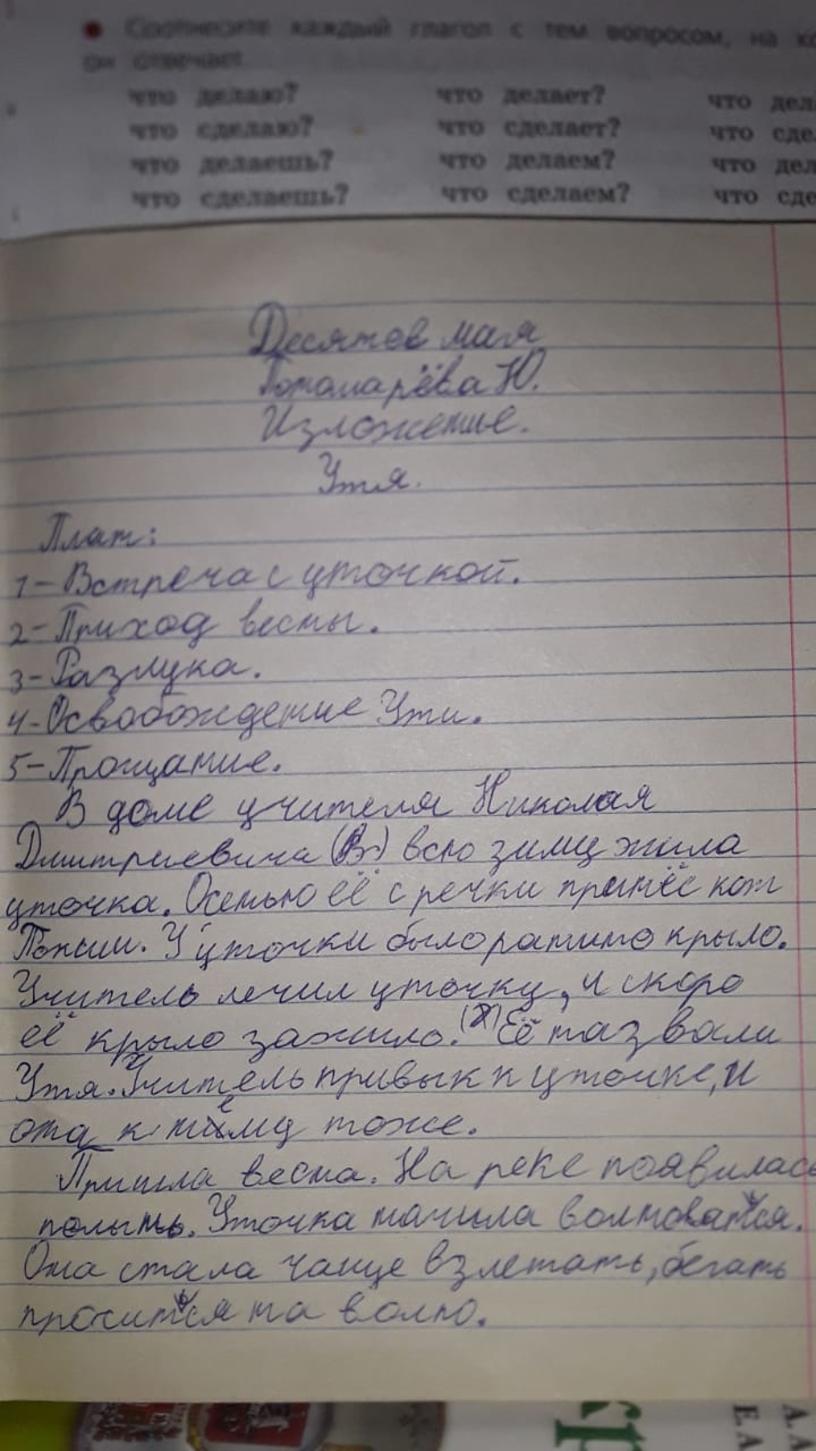 Соотнесите каждый глагол с тем вопросом, на ко
он отвечает
что делаю? что делает? что дел
что сделаю? что сделает? что сде
что делаешь? что делаем? что дел
что сделаешь? что сделаем? что сде
Десятое мая
Пономарёва Ю.
Изложение.
Утя.
План:
1-Встреча с уточкой.
2-Приход весны.
3-Разлука.
4-Освобождение Ути.
5-Прощание.
В доме учителя Николая
Дмитриевича (В) всю зиму жила
уточка. Осенью её с речки принёс кот
Попсик. У уточки было ранино крыло.
Учитель лечил уточку, и скоро
её крыло зажило. Её назвали
Утя. Учитель привык к уточке, и
она к нему тоже.
Пришла весна. На реке появилась
полынь. Уточка начила волноваться.
Она стала чаще взлетать, бегать
проситься на волю.